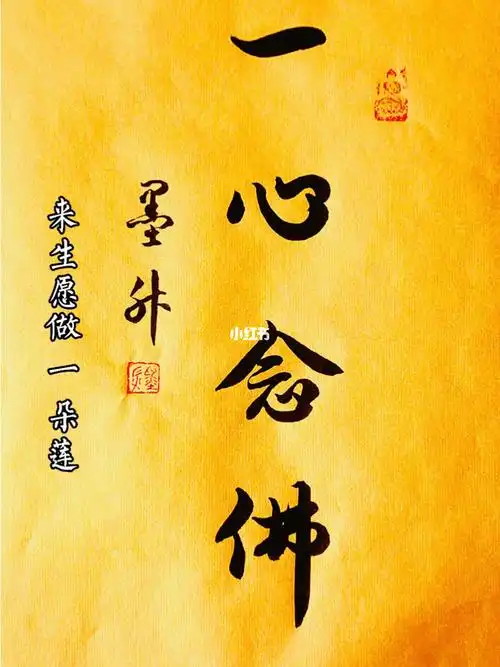 一心念佛
墨升
来生愿做一朵莲
小红书